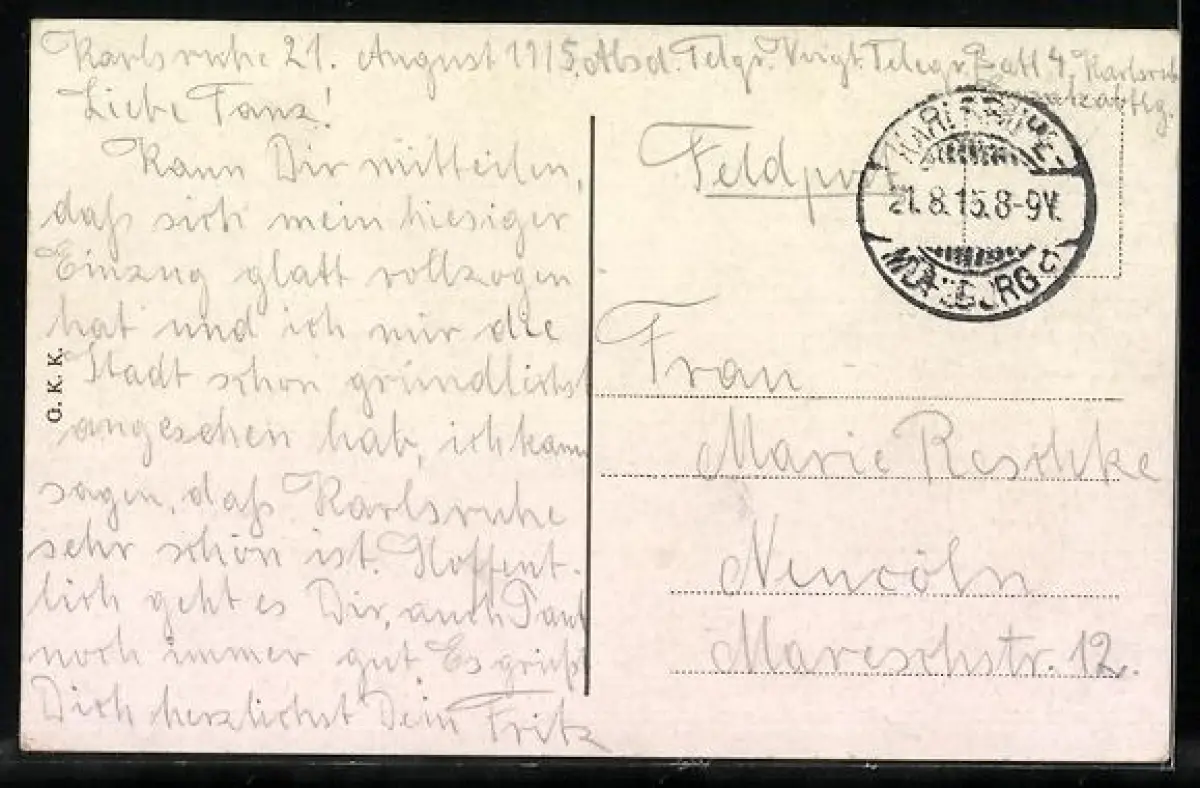 Karlsruhe 21. August 1915. Absd. Telgr. Voigt. Telegr. Batl 4. Karlsruhe
Liebe Tanz!
Kann Dir mitteilen,
daß sich mein hiesiger
Einzug glatt vollzogen
hat und ich mir die
Stadt schon gründlichst
angesehen hab, ich kann
sagen, daß Karlsruhe
sehr schön ist. Hoffent-
lich geht es Dir, auch Paul
noch immer gut. Es grüßt
Dich herzlichst Dein Fritz
G. K. K.
Feldpost
KARLSRUHE-
21.8.15.8-9V.
MÜHLBURG c
Frau
Marie Reschke
Neucöln
Mareschstr. 12.